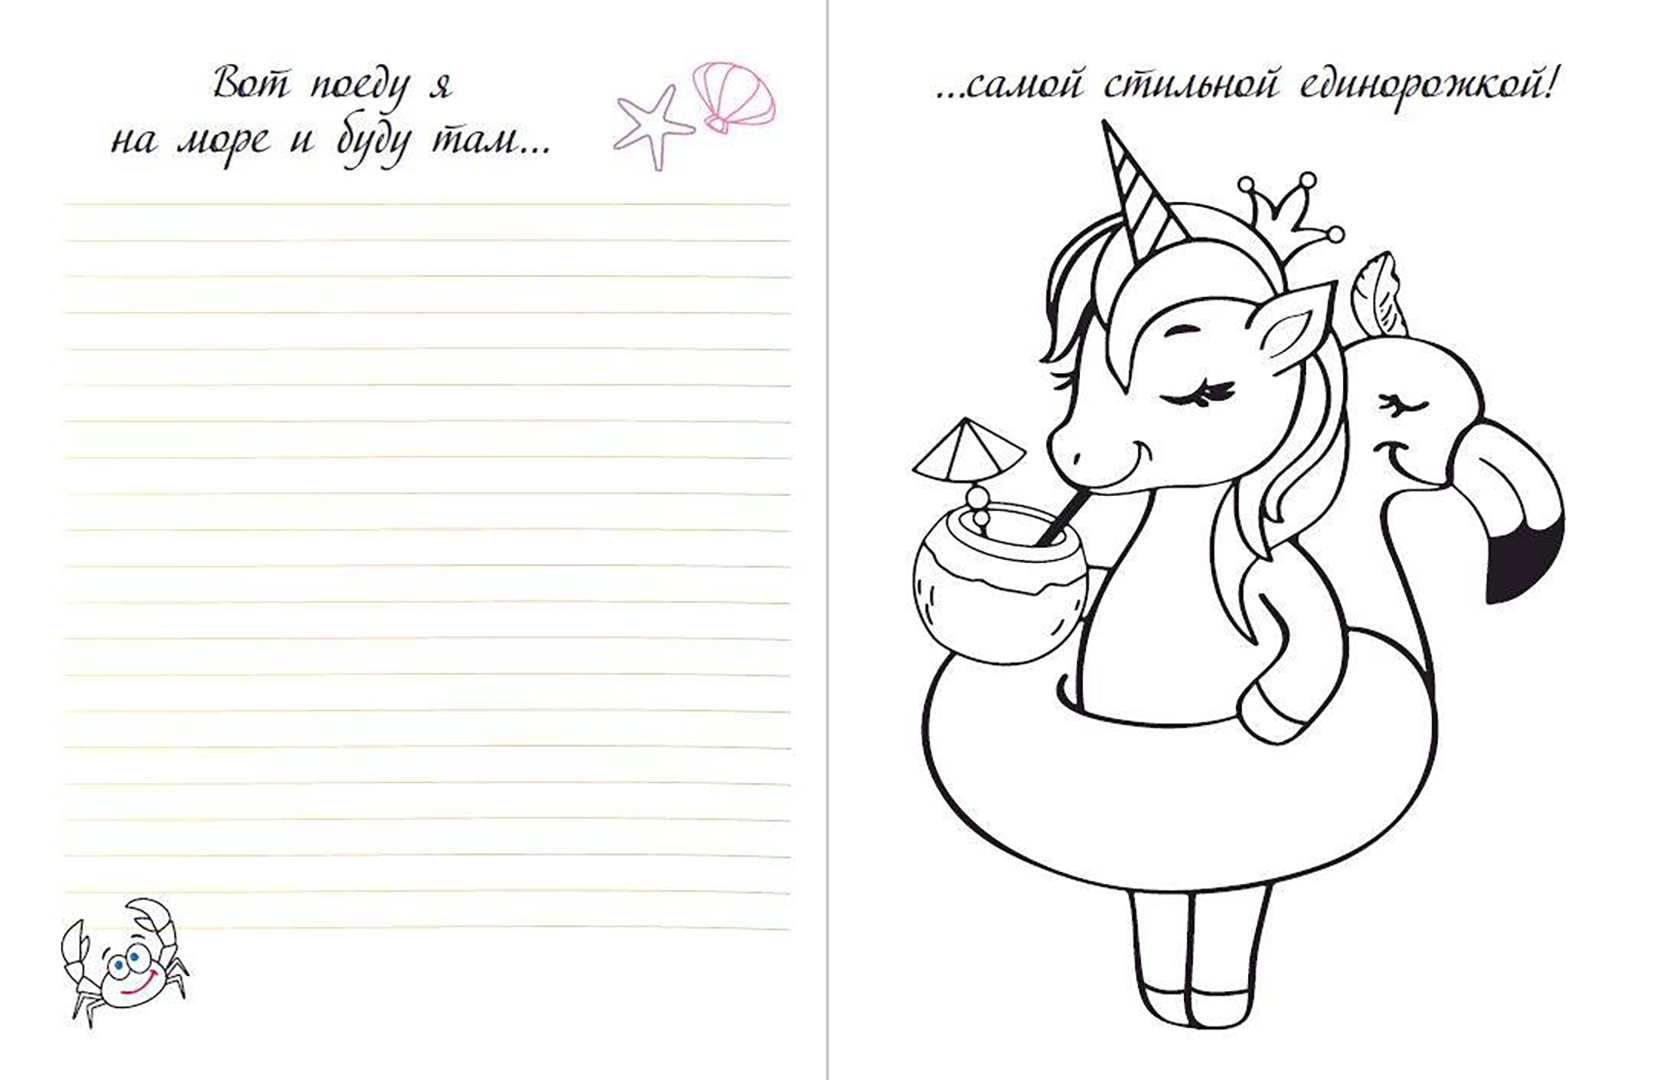 Вот поеду я
на море и буду там...
...самой стильной единорожкой!